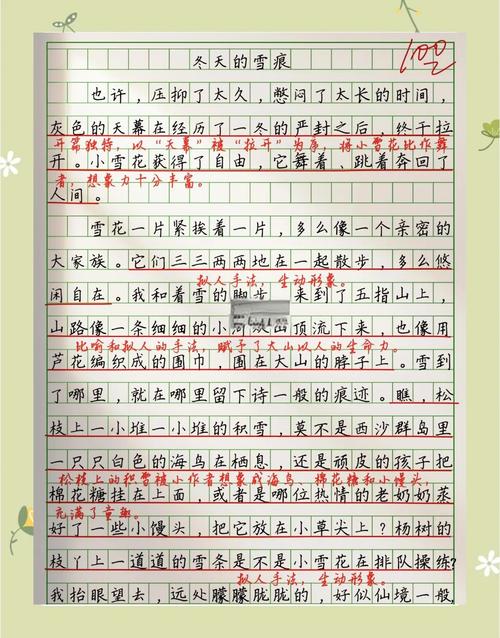 冬天的雪痕
100
也许，压抑了太久，憋闷了太长的时间，
灰色的天幕在经历了一冬的严封之后，终于拉
开篇独特，以“天幕”被“拉开”为序，将小雪花比作舞
开。小雪花获得了自由，它舞着、跳着奔回了
者，想象力十分丰富。
人间。
雪花一片紧挨着一片，多么像一个亲密的
大家族。它们三三两两地在一起散步，多么悠
拟人手法，生动形象。
闲自在。我和着雪的脚步，来到了五指山上，
山路像一条细细的小河从山顶流下来，也像用
比喻和拟人的手法，赋予了大山以人的生命力。
芦花编织成的围巾，围在大山的脖子上。雪到
了哪里，就在哪里留下诗一般的痕迹。瞧，松
枝上一小堆一小堆的积雪，莫不是西沙群岛里
一只只白色的海鸟在栖息，还是顽皮的孩子把
松枝上的积雪被小作者想象成海鸟、棉花糖和小馒头，
棉花糖挂在上面，或者是哪位热情的老奶奶蒸
充满了童趣。
好了一些小馒头，把它放在小草尖上？杨树的
枝丫上一道道的雪条是不是小雪花在排队操练？
拟人手法，生动形象。
我抬眼望去，远处朦朦胧胧的，好似仙境一般，